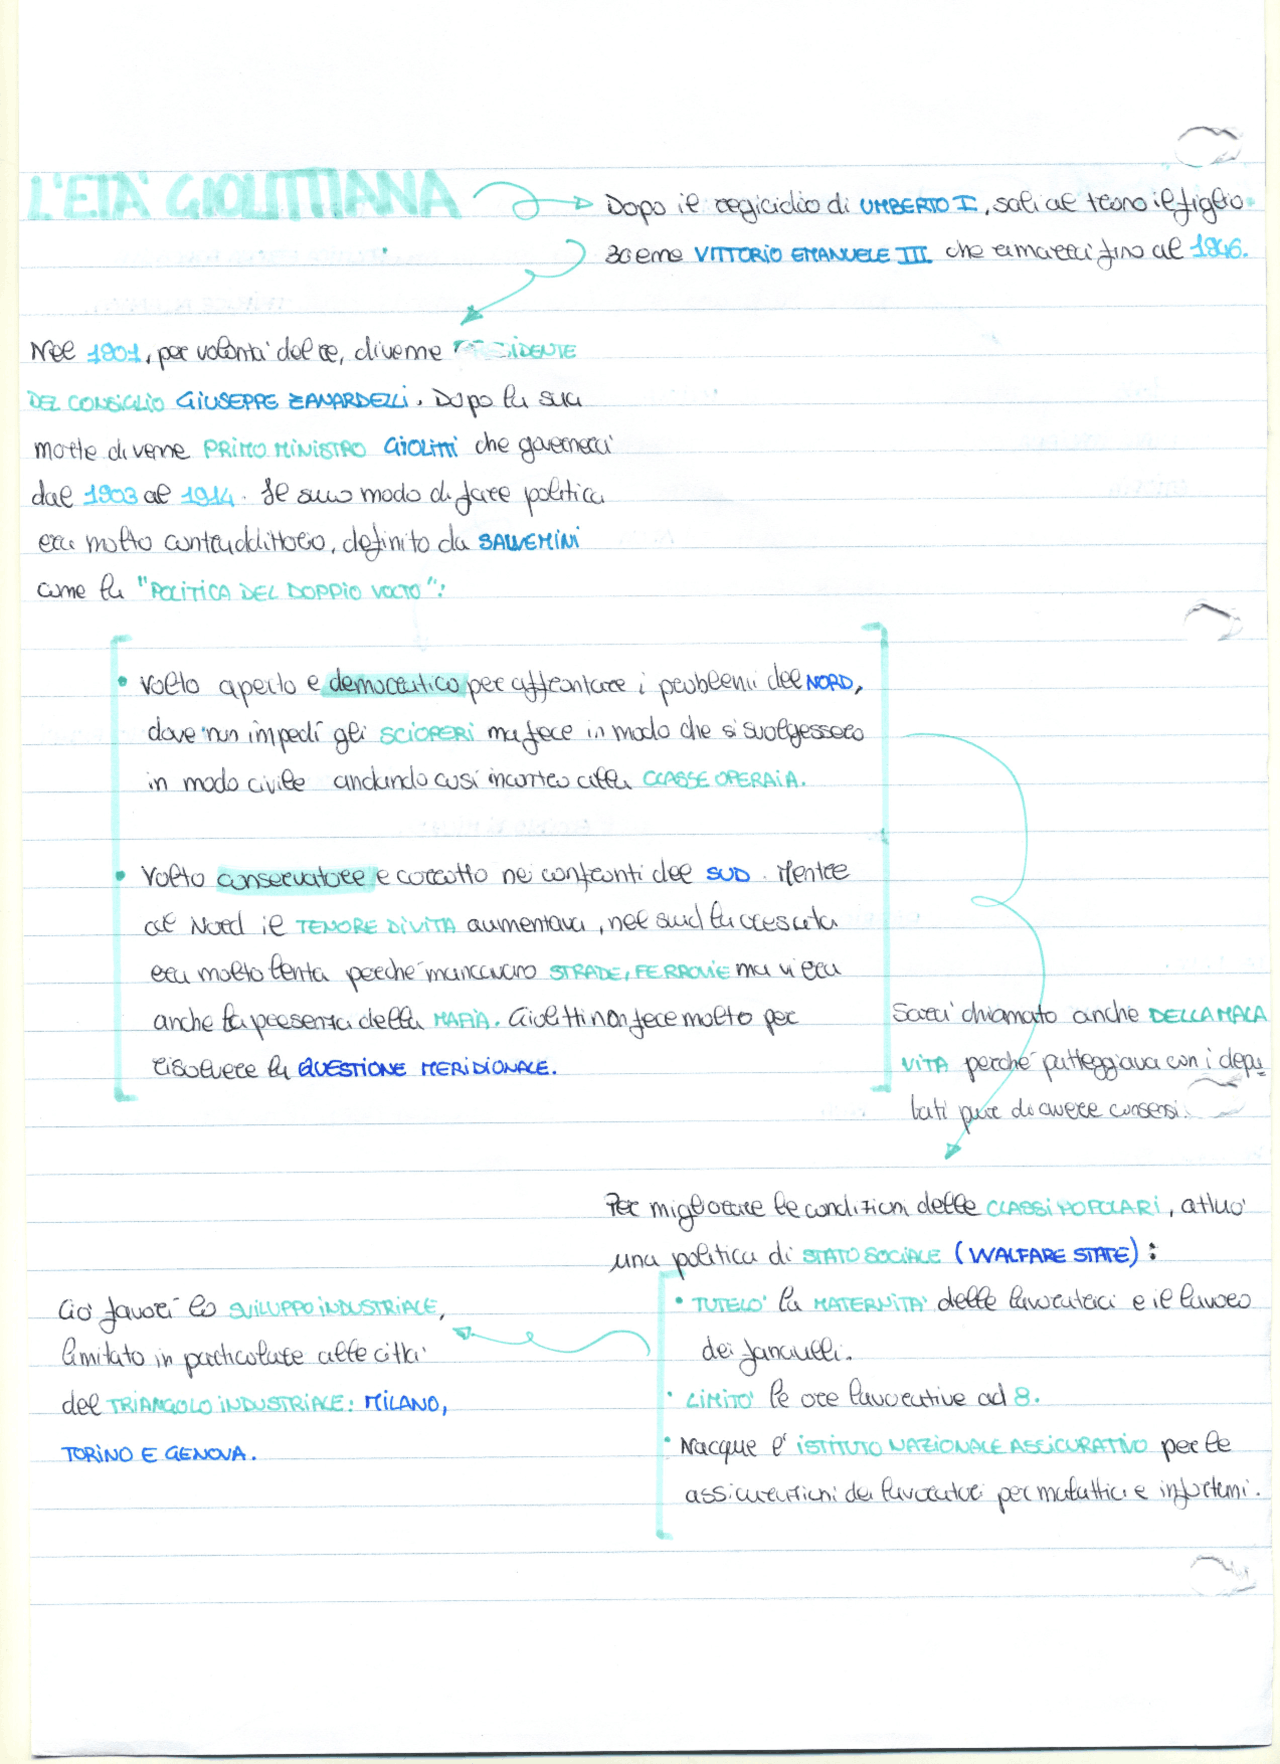 L'ETÀ GIOLITTIANA
Dopo il regicidio di UMBERTO I, salì al trono il figlio
30enne VITTORIO EMANUELE III che rimarrà fino al 1946.
Nel 1901, per volontà del re, divenne PRESIDENTE
DEL CONSIGLIO GIUSEPPE ZANARDELLI. Dopo la sua
morte divenne PRIMO MINISTRO GIOLITTI che governerà
dal 1903 al 1914. Il suo modo di fare politica
era molto contraddittorio, definito da SALVEMINI
come la "POLITICA DEL DOPPIO VOLTO":
• Volto aperto e democratico per affrontare i problemi del NORD,
dove non impedì gli SCIOPERI ma fece in modo che si svolgessero
in modo civile andando così incontro alla CLASSE OPERAIA.
• Volto conservatore e corrotto nei confronti del SUD. Mentre
al Nord il TENORE DI VITA aumentava, nel sud la crescita
era molto lenta perché mancavano STRADE, FERROVIE ma vi era
anche la presenza della MAFIA. Giolitti non fece molto per
risolvere la QUESTIONE MERIDIONALE.
Sarà chiamato anche DELLA MALA
VITA perché patteggiava con i depu
tati pur di avere consensi.
Per migliorare le condizioni delle CLASSI POPOLARI, attuò
una politica di STATO SOCIALE (WALFARE STATE):
• TUTELÒ la MATERNITÀ delle lavoratrici e il lavoro
dei fanciulli.
• LIMITÒ le ore lavorative ad 8.
• Nacque l'ISTITUTO NAZIONALE ASSICURATIVO per le
assicurazioni dei lavoratori per malattie e infortuni.
Ciò favorì lo SVILUPPO INDUSTRIALE,
limitato in particolare alle città
del TRIANGOLO INDUSTRIALE: MILANO,
TORINO E GENOVA.